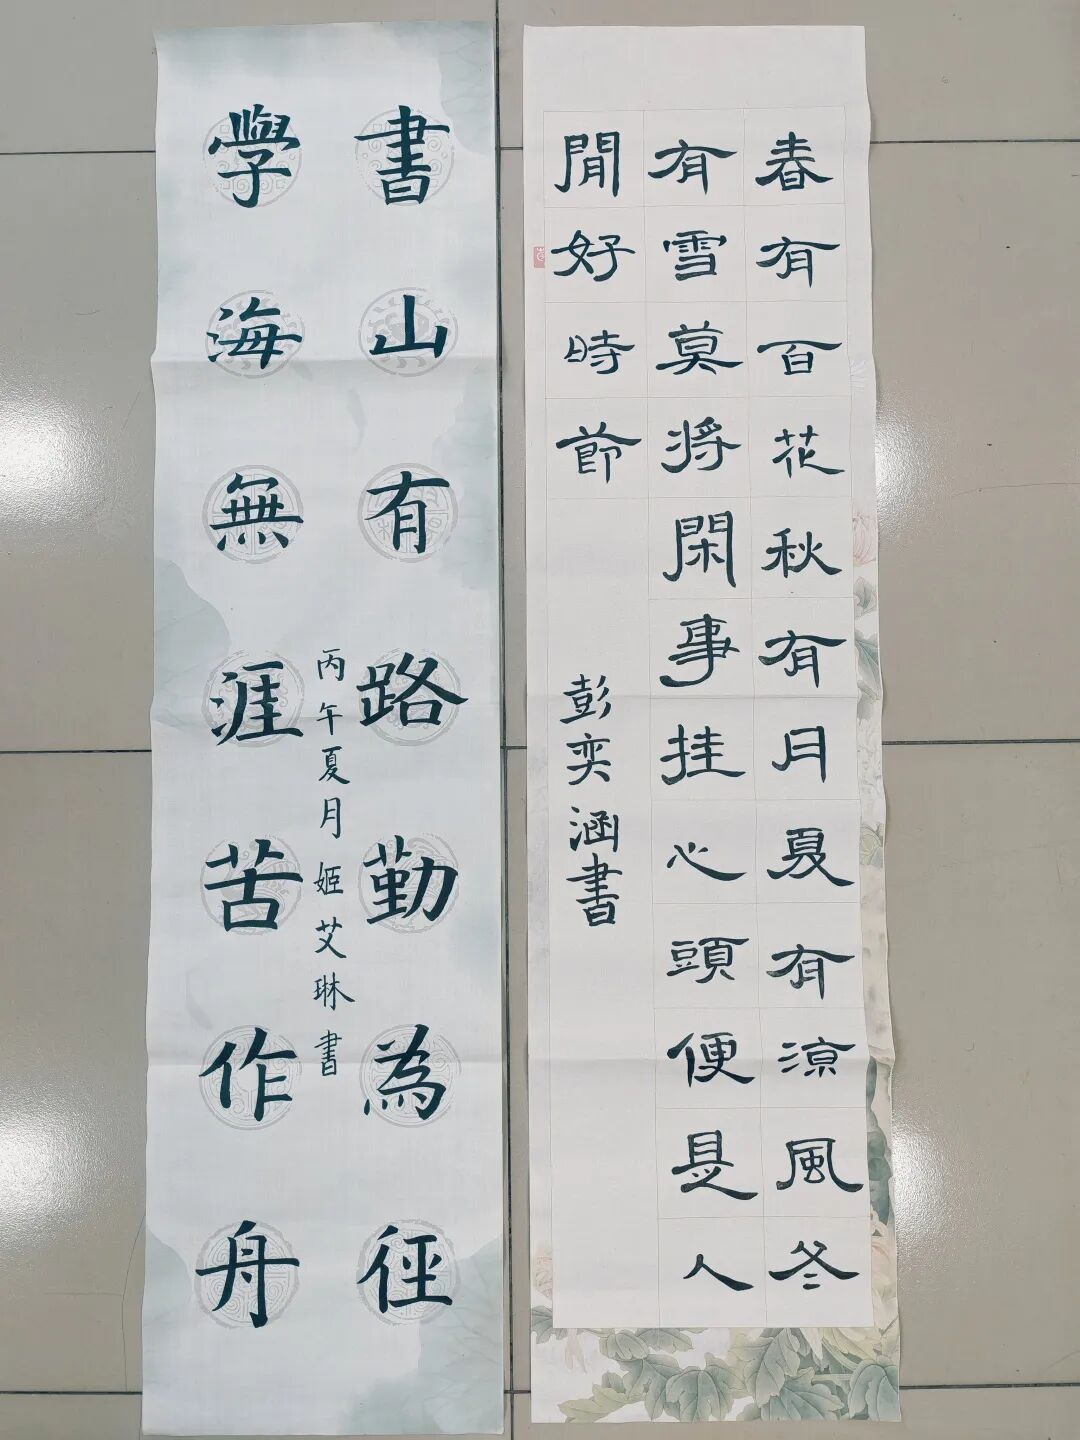 書山有路勤為徑
學海無涯苦作舟
丙午夏月姬艾琳書
春有百花秋有月夏有涼風冬
有雪莫将閑事挂心頭便是人
閒好時節
彭奕涵書